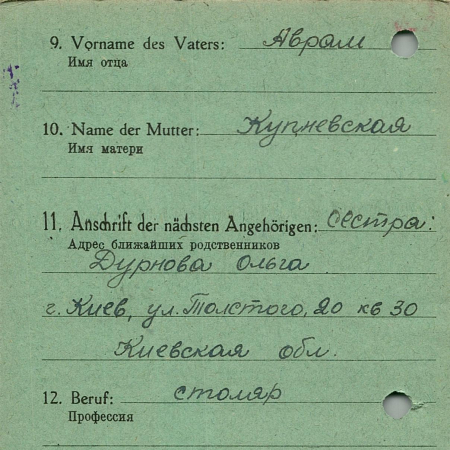 9. Vorname des Vaters: Аврам
Имя отца
10. Name der Mutter: Купневская
Имя матери
11. Anschrift der nächsten Angehörigen: Сестра:
Адрес ближайших родственников
Дурнова Ольга
г. Киев, ул. Толстого, 20 кв 30
Киевская обл.
12. Beruf: столяр
Профессия